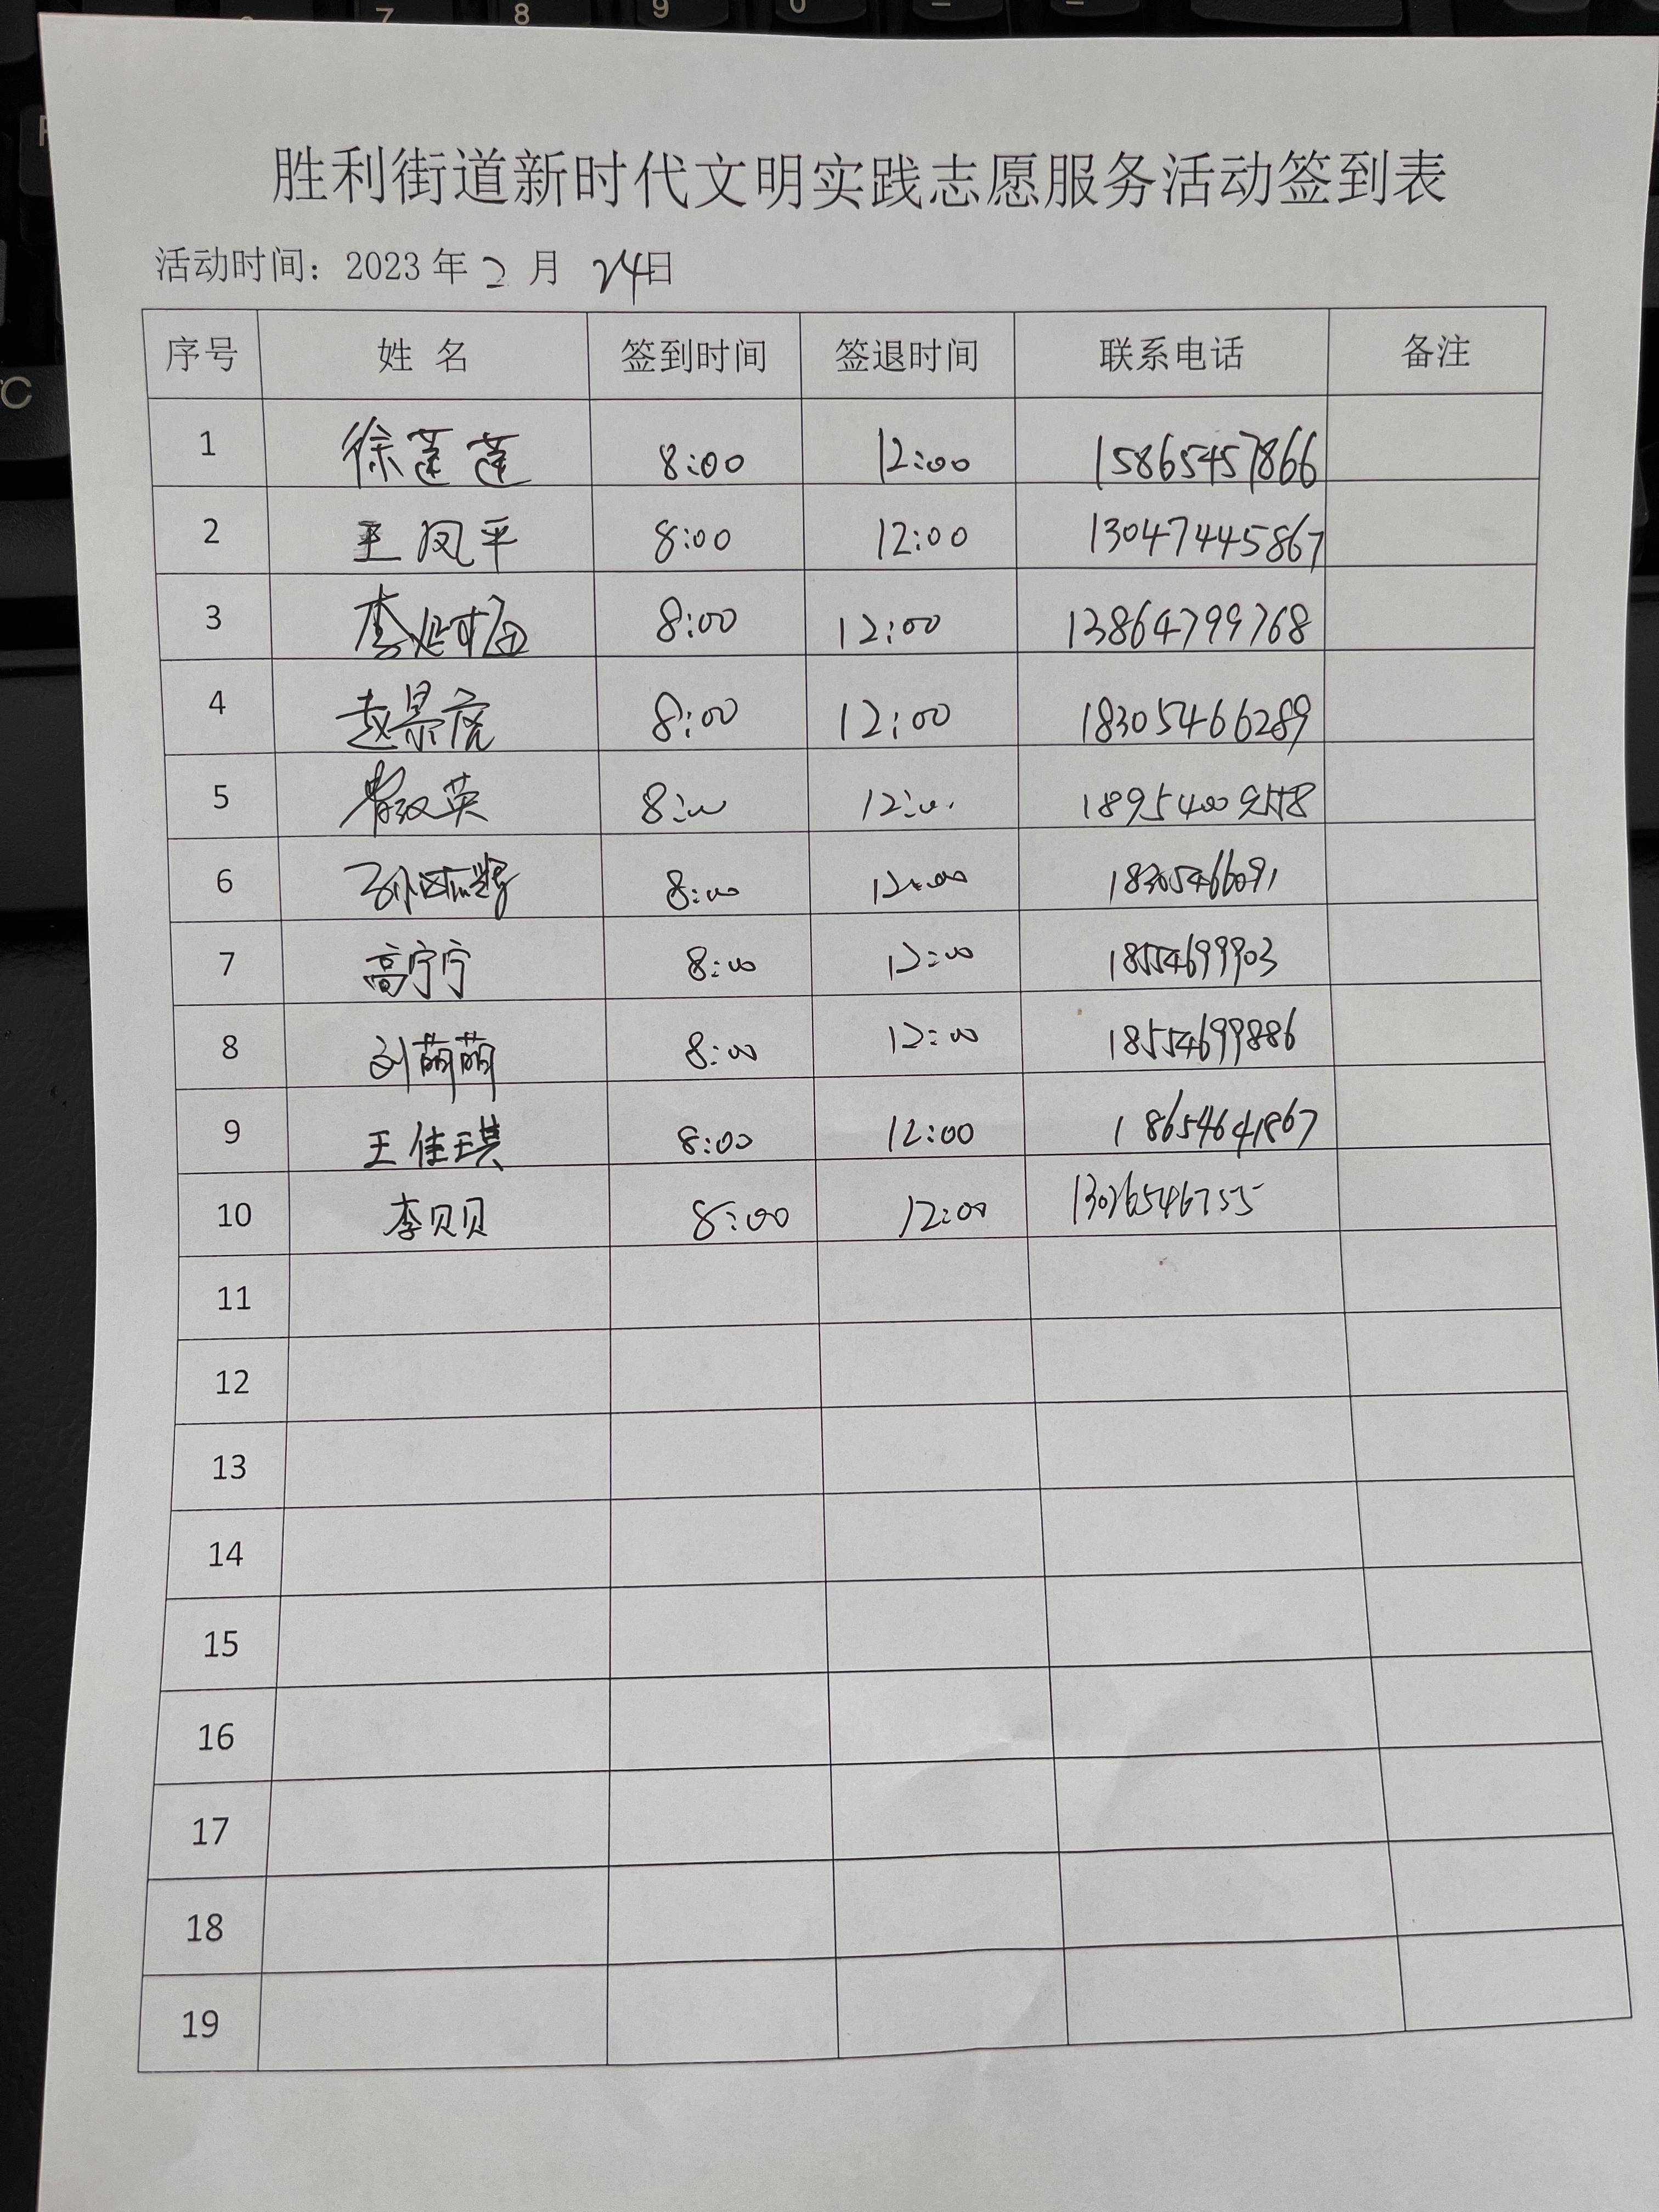 胜利街道新时代文明实践志愿服务活动签到表
活动时间：2023年2月24日
序号 姓名 签到时间 签退时间 联系电话 备注
1 徐莲莲 8:00 12:00 15865457866
2 王凤平 8:00 12:00 13047445867
3 李延 8:00 12:00 13864799768
4 赵景虎 8:00 12:00 18305466289
5 英 8:00 12:00
6 孙 8:00 12:00 18305466091
7 高宁宁 8:00 12:00 18554699903
8 刘萌萌 8:00 12:00 18554699886
9 王佳琪 8:00 12:00 18654641867
10 李贝贝 8:00 12:00
11
12
13
14
15
16
17
18
19